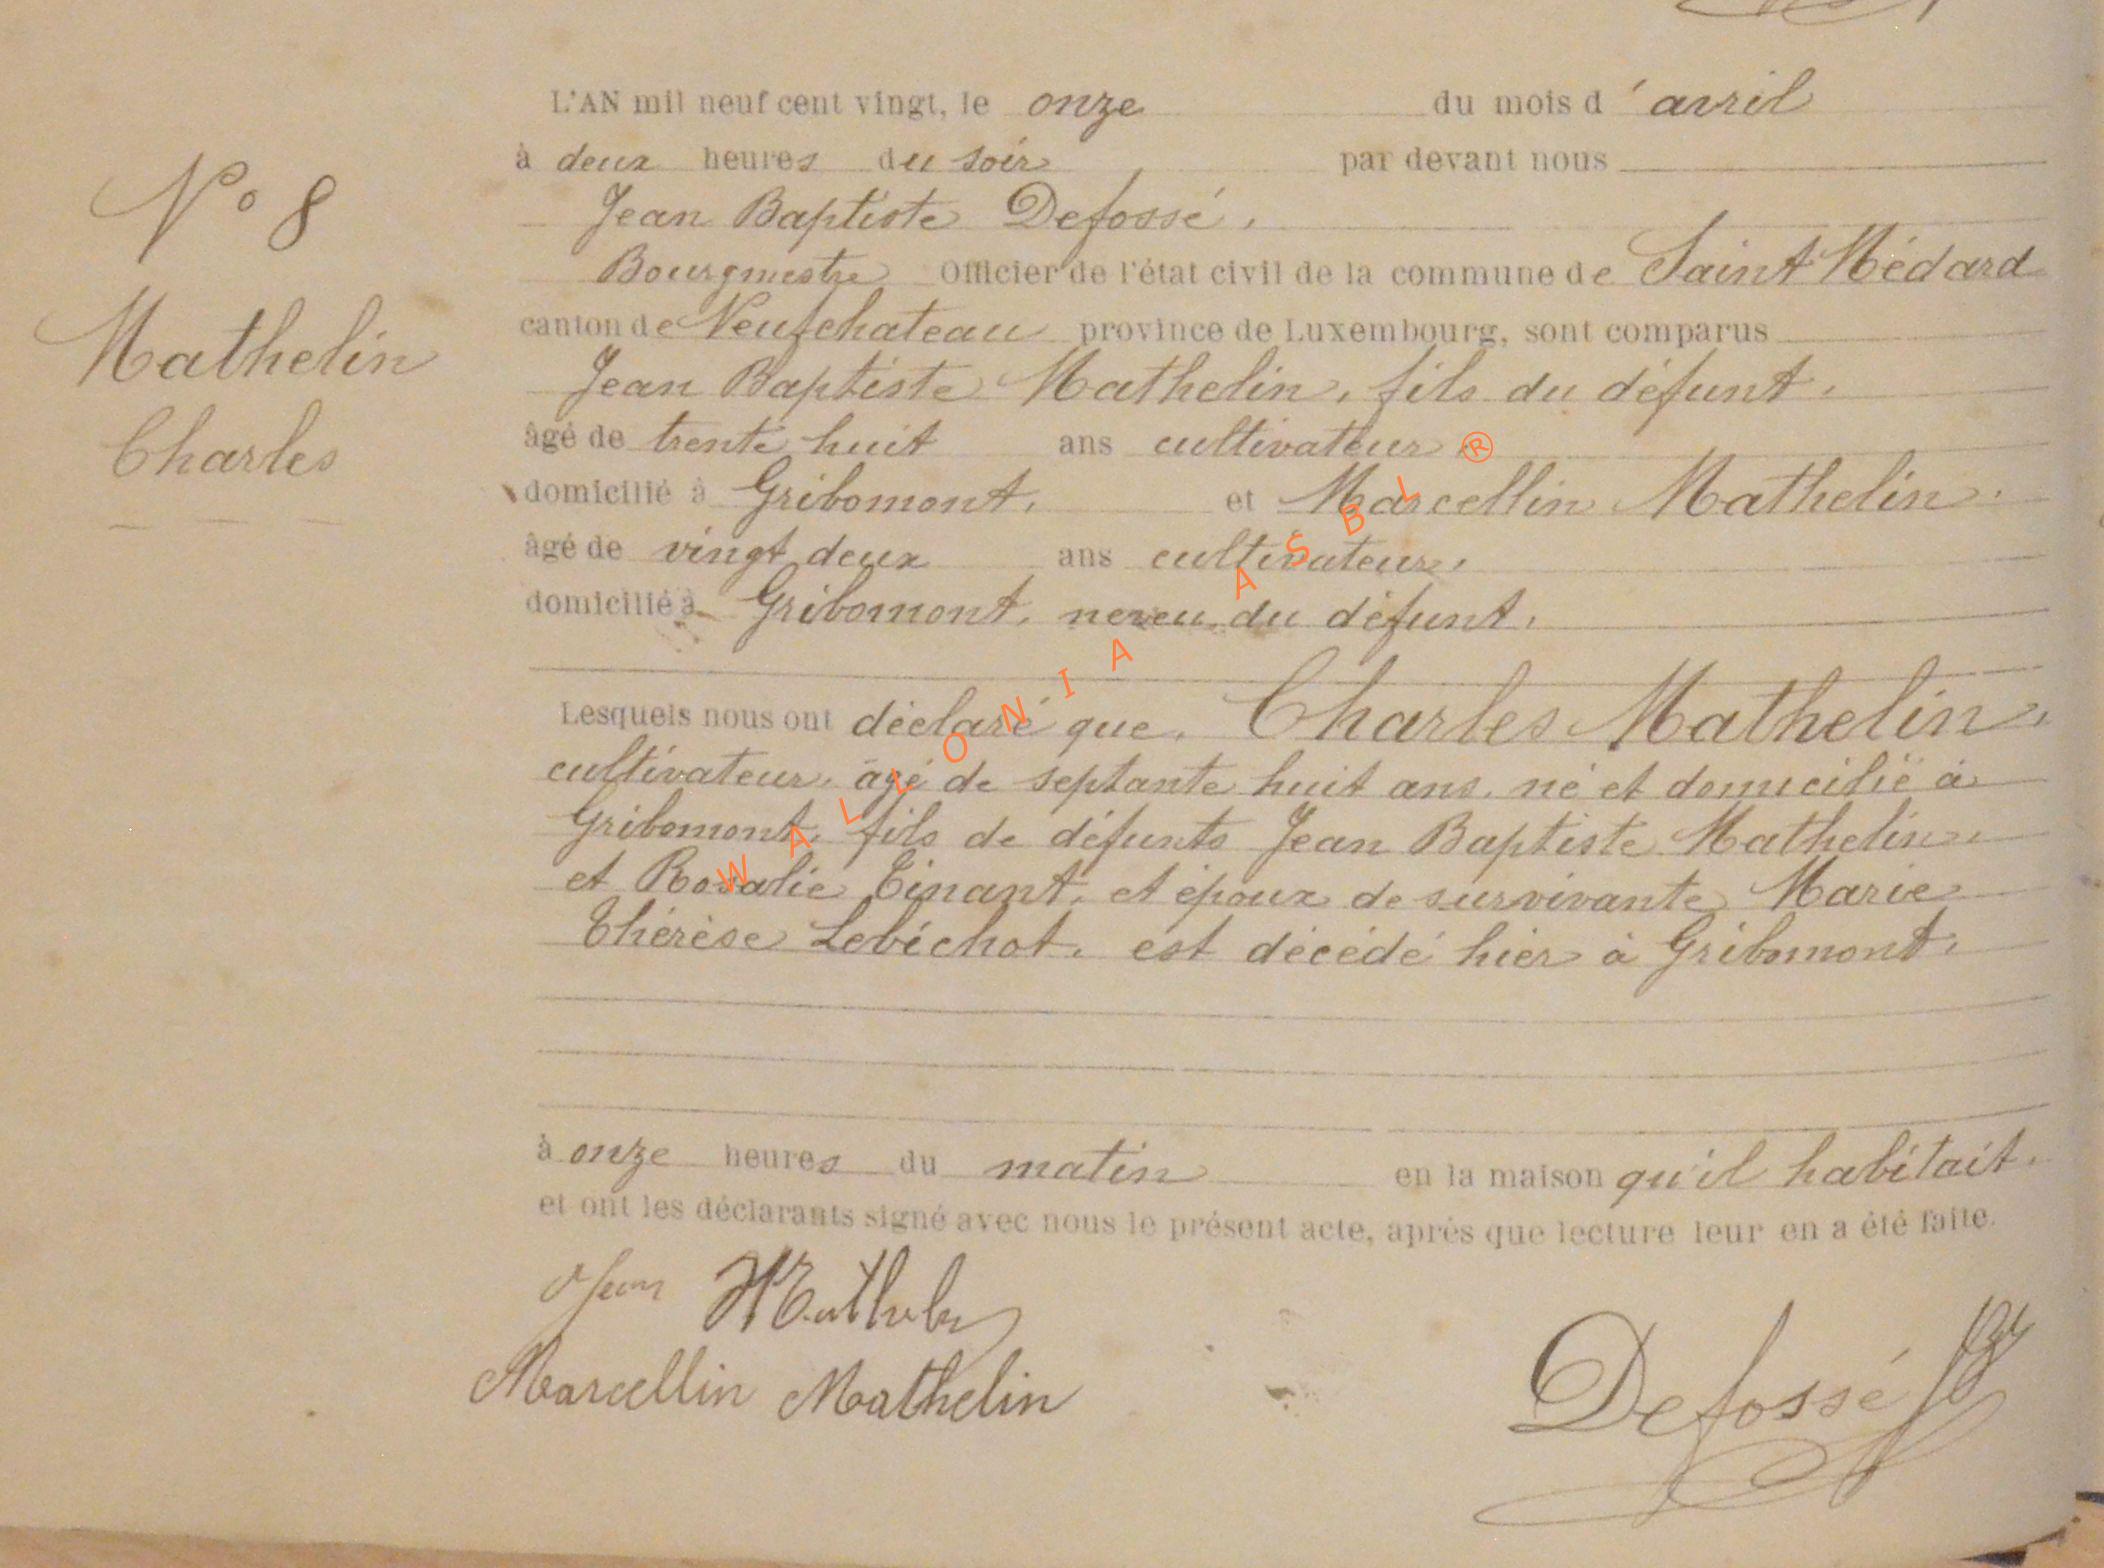 L'AN mil neuf cent vingt, le onze du mois d'avril
N° 8
à deux heures du soir par devant nous
Jean Baptiste Defossé,
Bourgmestre Officier de l'état civil de la commune de Saint Médard
Mathelin
canton de Neufchateau province de Luxembourg, sont comparus
Jean Baptiste Mathelin, fils du défunt,
Charles
âgé de trente huit ans cultivateur,
domicilié à Gribomont, et Marcellin Mathelin,
âgé de vingt deux ans cultivateur,
domicilié à Gribomont, neveu du défunt,
Lesquels nous ont déclaré que, Charles Mathelin,
cultivateur, âgé de septante huit ans, né et domicilié à
Gribomont, fils de défunts Jean Baptiste Mathelin,
et Rosalie Tinant, et époux de survivante Marie
Thérèse Lebichot, est décédé hier à Gribomont,
à onze heures du matin en la maison qu'il habitait.
et ont les déclarants signé avec nous le présent acte, après que lecture leur en a été faite.
Jean Mathelin
Marcellin Mathelin
Defossé
WALLONIA ASBL ®